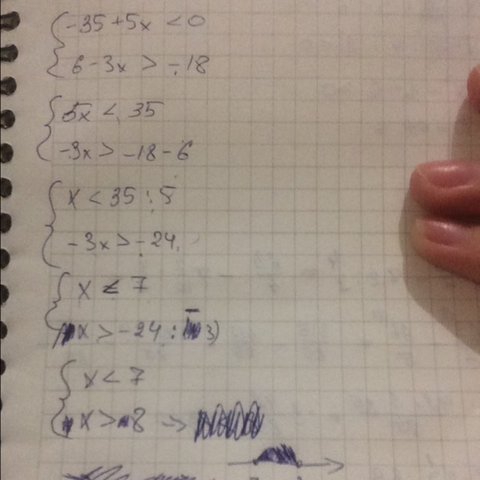 { -35 + 5x < 0
6 - 3x > -18
{ 5x < 35
-3x > -18 - 6
{ x < 35 : 5
-3x > -24
{ x < 7
x > -24 : (-3)
{ x < 7
x > 8 →